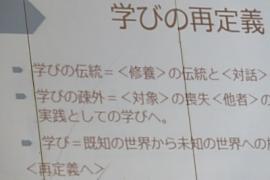 学びの再定義
学びの伝統＝＜修養＞の伝統と＜対話＞
学びの疎外＝＜対象＞の喪失＜他者＞の
実践としての学びへ。
学び＝既知の世界から未知の世界への
＜再定義へ＞